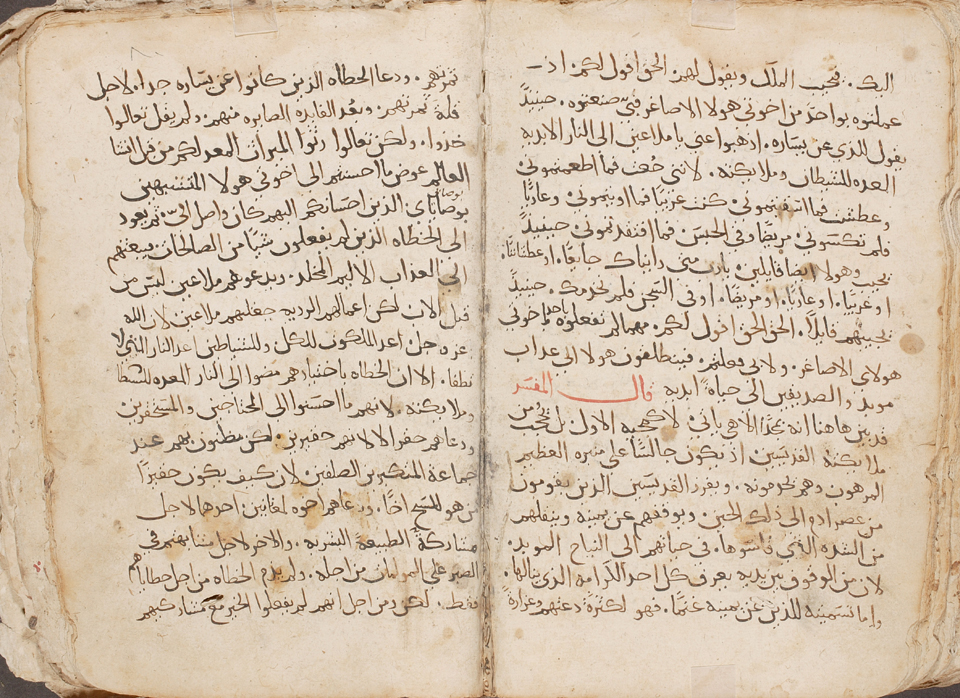 اليك. فيجيب الملك ويقول لهم الحق اقول لكم اذ
عملتوه بواحد من اخوتي هولا الاصاغر فبي صنعتوه. حينيذً
يقول للذي عن يساره. اذهبوا عني يا ملاعين الى النار الابديه
العده للشيطان وملايكته. لانني جُعت فما اطعمتموني
وعطشت فما اسقيتموني. كنت غريبًا فما اويتموني. وعاريًا
فلم تكسوني. مريضًا وفي الحبس فما افتقدتموني. حينيذً
يجيب وهولا ايضا قايلين. يارب متى رايناك جايعًا. او عطشانًا.
او غريبًا. او عاريًا. او مريضًا. او في السجن فلم نخدمك. حينيذً
يجيبهم قايلًا. الحق الحق اقول لكم. مهما لم تفعلوه باحد اخوتي
هولاي الاصاغر. ولا بي فعلتم. فينطلقون هولا الى عداب
موبد والصديقين الى حياة ابديه قال المفسر
قد بين هاهنا انه بمجدًا الاهي ياتي. لا كمجيه الاول بل يجب من
ملايكته القديسين اذ يكون جالسًا على منبره العظيم
المرهوب وهم يخدمونه. ويفرز القديسين الذين يقومون
من عصر ادم الى ذلك الحين. ويوقفهم عن يمينه وينقلهم
من الشده الذي قاسوها. في حياتهم الى النياح الموبد.
لان من الوقوف بين يديه يعرف كل احد الكرامه الذي ينالها.
واما تسميته للذين عن يمينه غنمًا. فهو لكثرة دعتهم وغزارة
ثمرتهم. ودعا الخطاه الذين كانوا عن يساره جدا. لاجل
قلة ثمرتهم. وبُعد الفايده الصايره منهم. ولم يقل تعالوا
خدوا. ولكن تعالوا رثوا الميراث المعد لكم من قبل انشا
العالم عوض ما احسنتم الى اخوتي هولا المتشبهين
بوصاياي الذين احسانكم اليهم كان واصل اليّ. ثم يعود
الى الخطاه الذين لم يفعلون شيًا من الصالحات فيبعتهم
الى العذاب الاليم المخلد. ويدعوهم ملاعين ليس من
قبل الان لكن اعمالهم الرديه جعلتهم ملاعين لان الله
عز وجل اعد الملكوت للكل وللشياطين اعد النار التي لا
تطفا. الا ان الخطاه باختيارهم مضوا الى النار المعده للشيطان
وملايكته. لانهم ما احسنوا الى المحتاجين والمستحقرين
ودعاهم حقرا لا لانهم حقيرين. لكن مظنون بهم عند
جماعة المتكبرين الصلفين. لان كيف يكون حقيرًا
من هو للمسيح اخًا. ودعاهم اخوه لمعانين. احدها لاجل
مشاركة الطبيعه البشريه. والاخر لاجل مشابهتهم في
الصبر على المولمات من اجله. ولم يدم الخطاه من اجل خطاياهم
فقط. لكن ومن اجل انهم لم يفعلوا الخير مع مشاركيهم